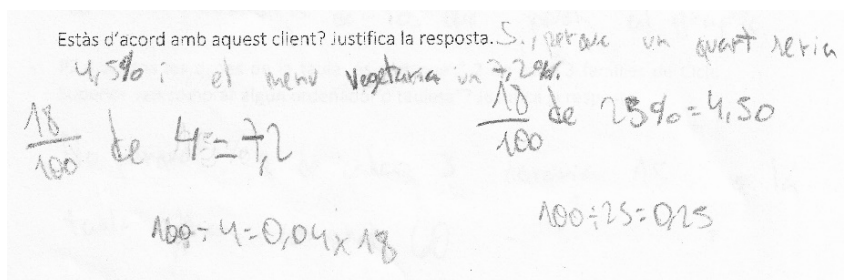 Estàs d'acord amb aquest client? Justifica la resposta. Sí, perque un quart seria
4,5% i el menu vegetaria un 7,2%.
18/100 de 4 = 7,2
18/100 de 25% = 4,50
100÷4=0,04×18
100÷25=0,25